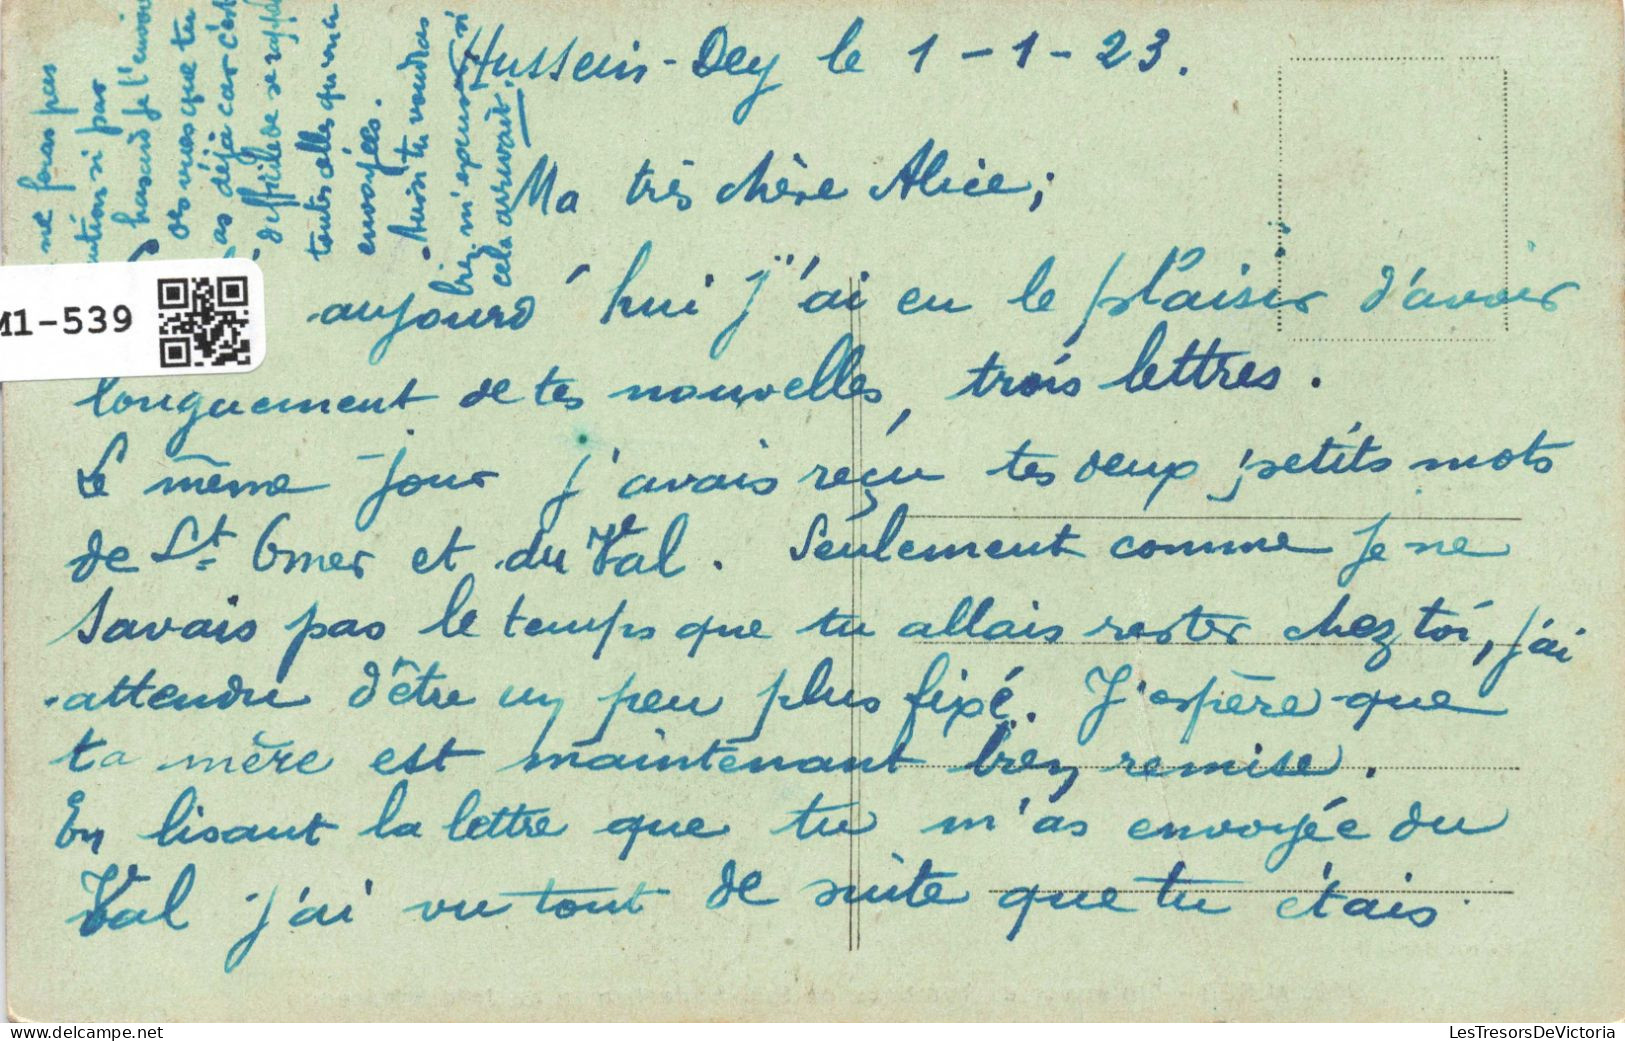 Hussein-Dey le 1-1-23.
Ma très chère Alice;
aujourd'hui j'ai eu le plaisir d'avoir
longuement de tes nouvelles, trois lettres.
Le même jour j'avais reçu tes deux petits mots
de St. Omer et du Val. Seulement comme je ne
savais pas le temps que tu allais rester chez toi, j'ai
attendu d'être un peu plus fixé. J'espère que
ta mère est maintenant bien remise.
En lisant la lettre que tu m'as envoyée du
Val j'ai vu tout de suite que tu étais
ne fais pas
si par
hasard je t'envoie
des vues que tu
as déjà car c'est
difficile de se rappeler
toutes celles qu'on a
envoyées.
Aussi tu voudras
bien m'excuser si
cela arrivait.
M1-539
LesTresorsDeVictoria